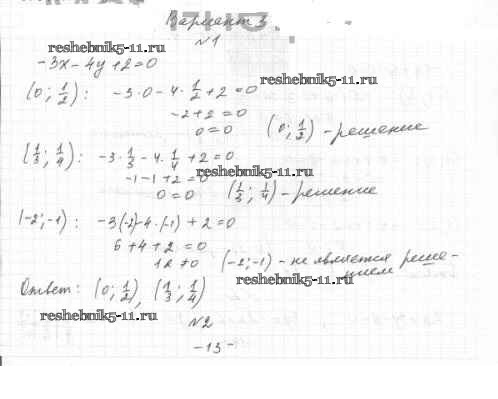 Вариант 3
№1
reshebnik5-11.ru
-3x-4y+2=0
reshebnik5-11.ru
(0; 1/2): -3·0-4·1/2+2=0
-2+2=0
0=0 (0; 1/2) - решение
(1/3; 1/4): -3·1/3-4·1/4+2=0
reshebnik5-11.ru
-1-1+2=0
0=0 (1/3; 1/4) - решение
(-2;-1): -3(-2)-4·(-1)+2=0
6+4+2=0
12≠0 (-2;-1) - не является реше-
нием
reshebnik5-11.ru
Ответ: (0; 1/2), (1/3; 1/4)
reshebnik5-11.ru
№2
-13-